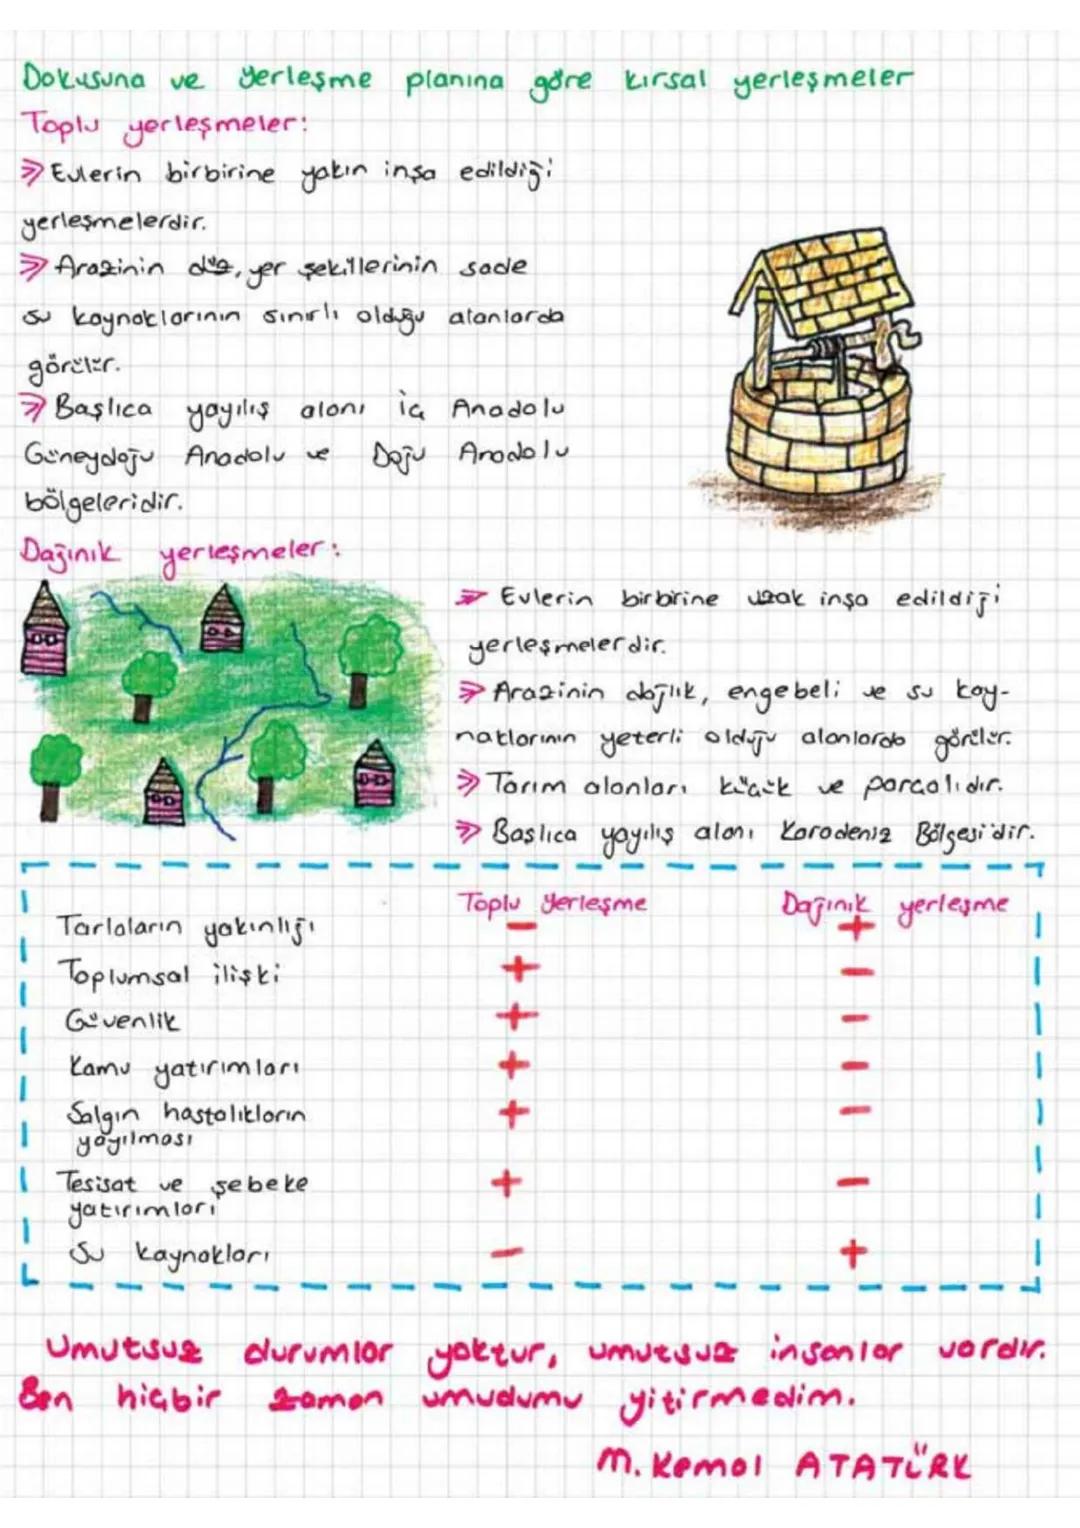 Dokusuna ve Yerleşme planına göre kırsal yerleşmeler
Toplu yerleşmeler:
⋙ Evlerin birbirine yakın inşa edildiği
yerleşmelerdir.
⋙ Arazinin düz, yer şekillerinin sade
su kaynaklarının sınırlı olduğu alanlarda
görülür.
⋙ Başlıca yayılış alanı iç Anadolu
Güneydoğu Anadolu ve Doğu Anadolu
bölgeleridir.
Dağınık yerleşmeler:
⋙ Evlerin birbirine uzak inşa edildiği
yerleşmelerdir.
⋙ Arazinin dağlık, engebeli ve su kay-
naklarının yeterli olduğu alanlarda görülür.
⋙ Tarım alanları küçük ve parçalıdır.
⋙ Başlıca yayılış alanı Karadeniz Bölgesi'dir.
Toplu Yerleşme Dağınık yerleşme
Tarlaların yakınlığı − +
Toplumsal ilişki + −
Güvenlik + −
Kamu yatırımları + −
Salgın hastalıkların
yayılması + −
Tesisat ve şebeke
yatırımları + −
Su kaynakları − +
Umutsuz durumlar yoktur, umutsuz insanlar vardır.
Ben hiçbir zaman umudumu yitirmedim.
M. Kemal ATATÜRK